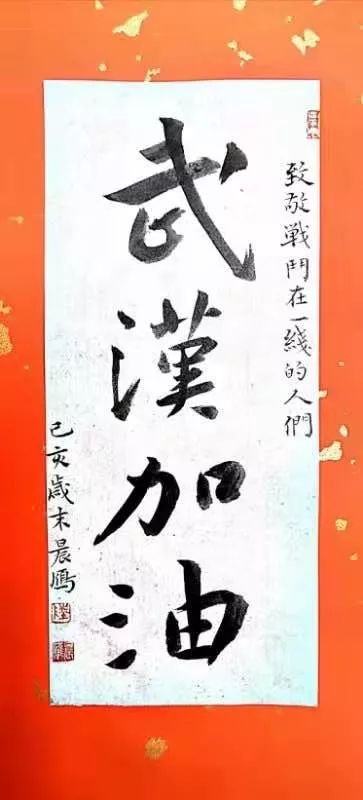 致敬戰鬥在一綫的人們
武漢加油
己亥歲末晨鵬